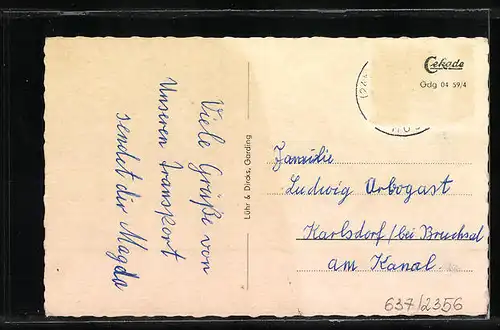 Viele Grüße von
Unseren transport
sendet dir Magda
Lühr & Dircks, Garding
Cekade
Gdg 04 59/4
Familie
Ludwig Arbogast
Karlsdorf/bei Bruchsal
am Kanal
637/2356